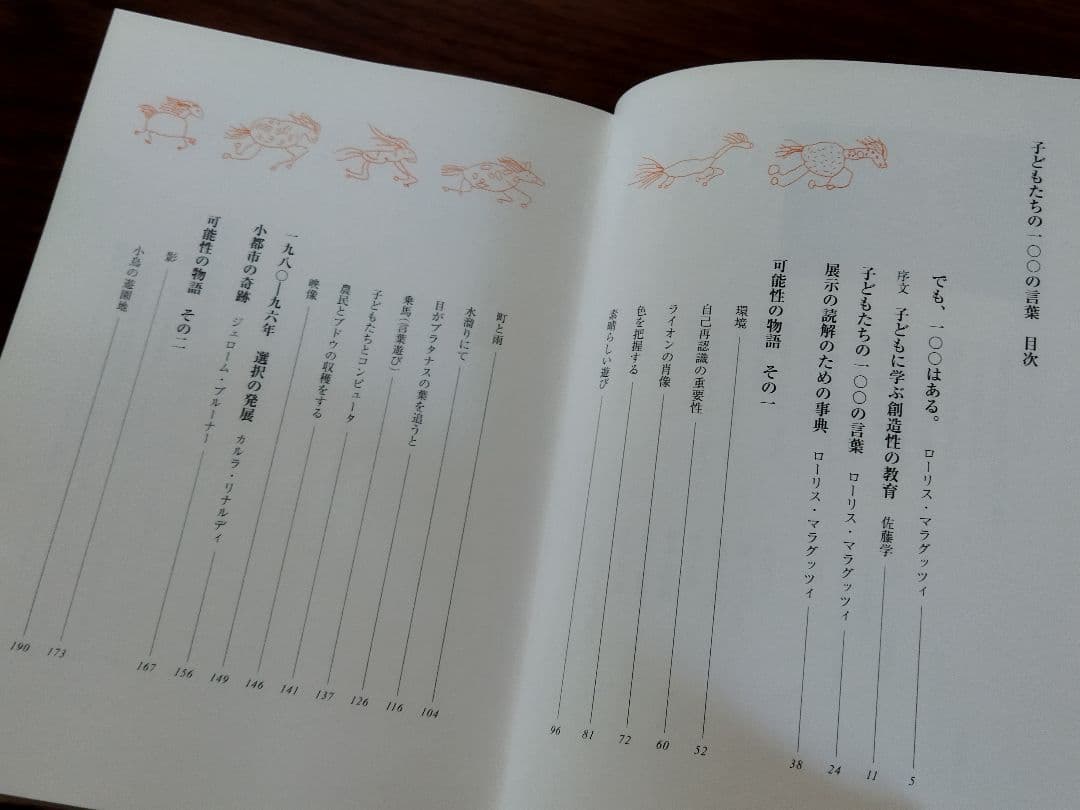 子どもたちの一〇〇の言葉 目次
でも、一〇〇はある。 ローリス・マラグッツィ 5
序文 子どもに学ぶ創造性の教育 佐藤学 11
子どもたちの一〇〇の言葉 ローリス・マラグッツィ 24
展示の読解のための事典 ローリス・マラグッツィ 38
可能性の物語 その一
環境 52
自己再認識の重要性 60
ライオンの肖像 72
色を把握する 81
素晴らしい遊び 96
町と雨 104
水溜りにて 116
目がプラタナスの葉を追うと 126
乗馬(言葉遊び) 137
子どもたちとコンピュータ 141
農民とブドウの収穫をする 146
映像 149
一九八〇―九六年 選択の発展 カルラ・リナルディ 156
小都市の奇跡 ジェローム・ブルーナー 167
可能性の物語 その二
影 173
小鳥の遊園地 190